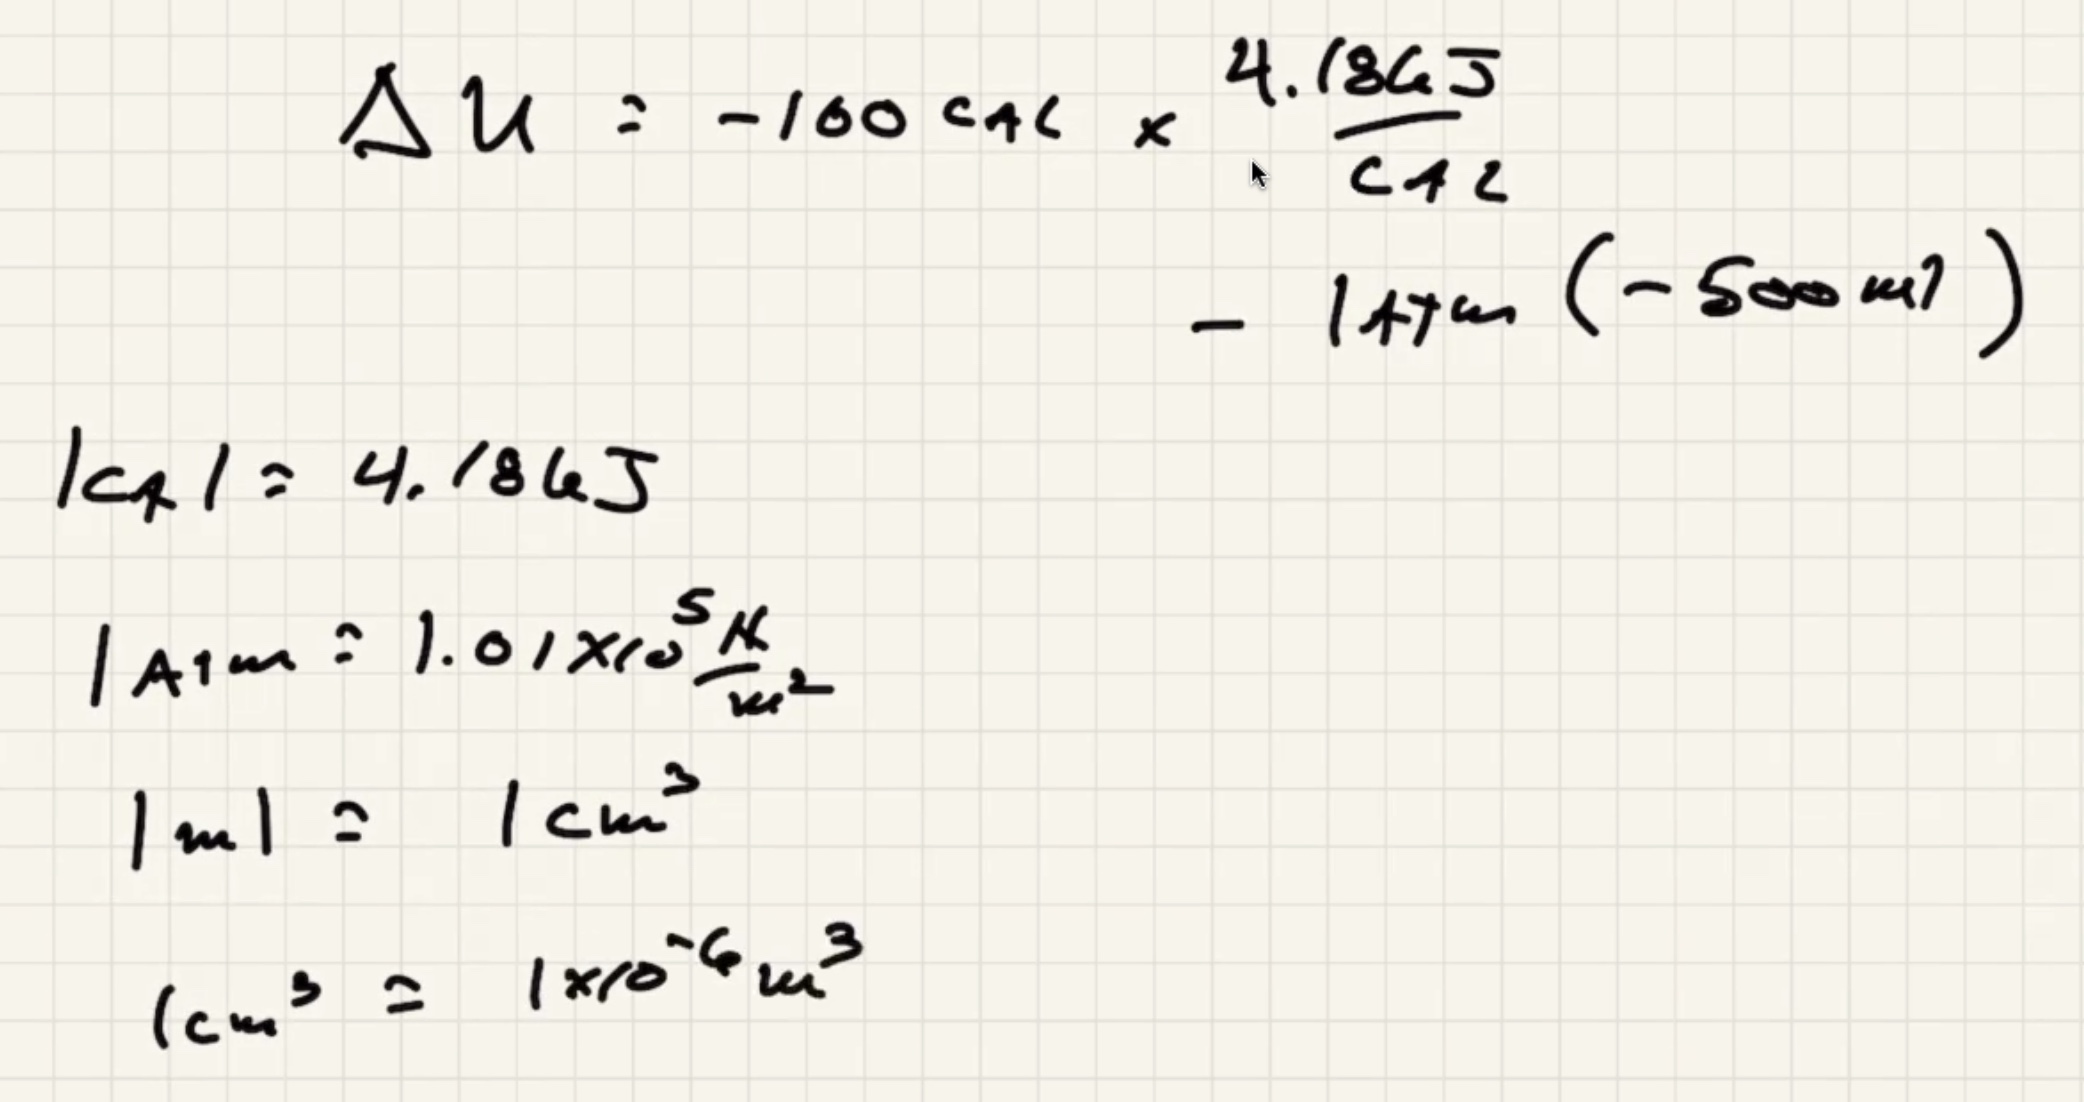 ΔU = -100 CAL × 4.186J / CAL
- 1 ATm (-500 ml)
1 CAl = 4.186J
1 ATm = 1.01 × 10⁵ N / m²
1 ml = 1 cm³
1 cm³ = 1 × 10⁻⁶ m³